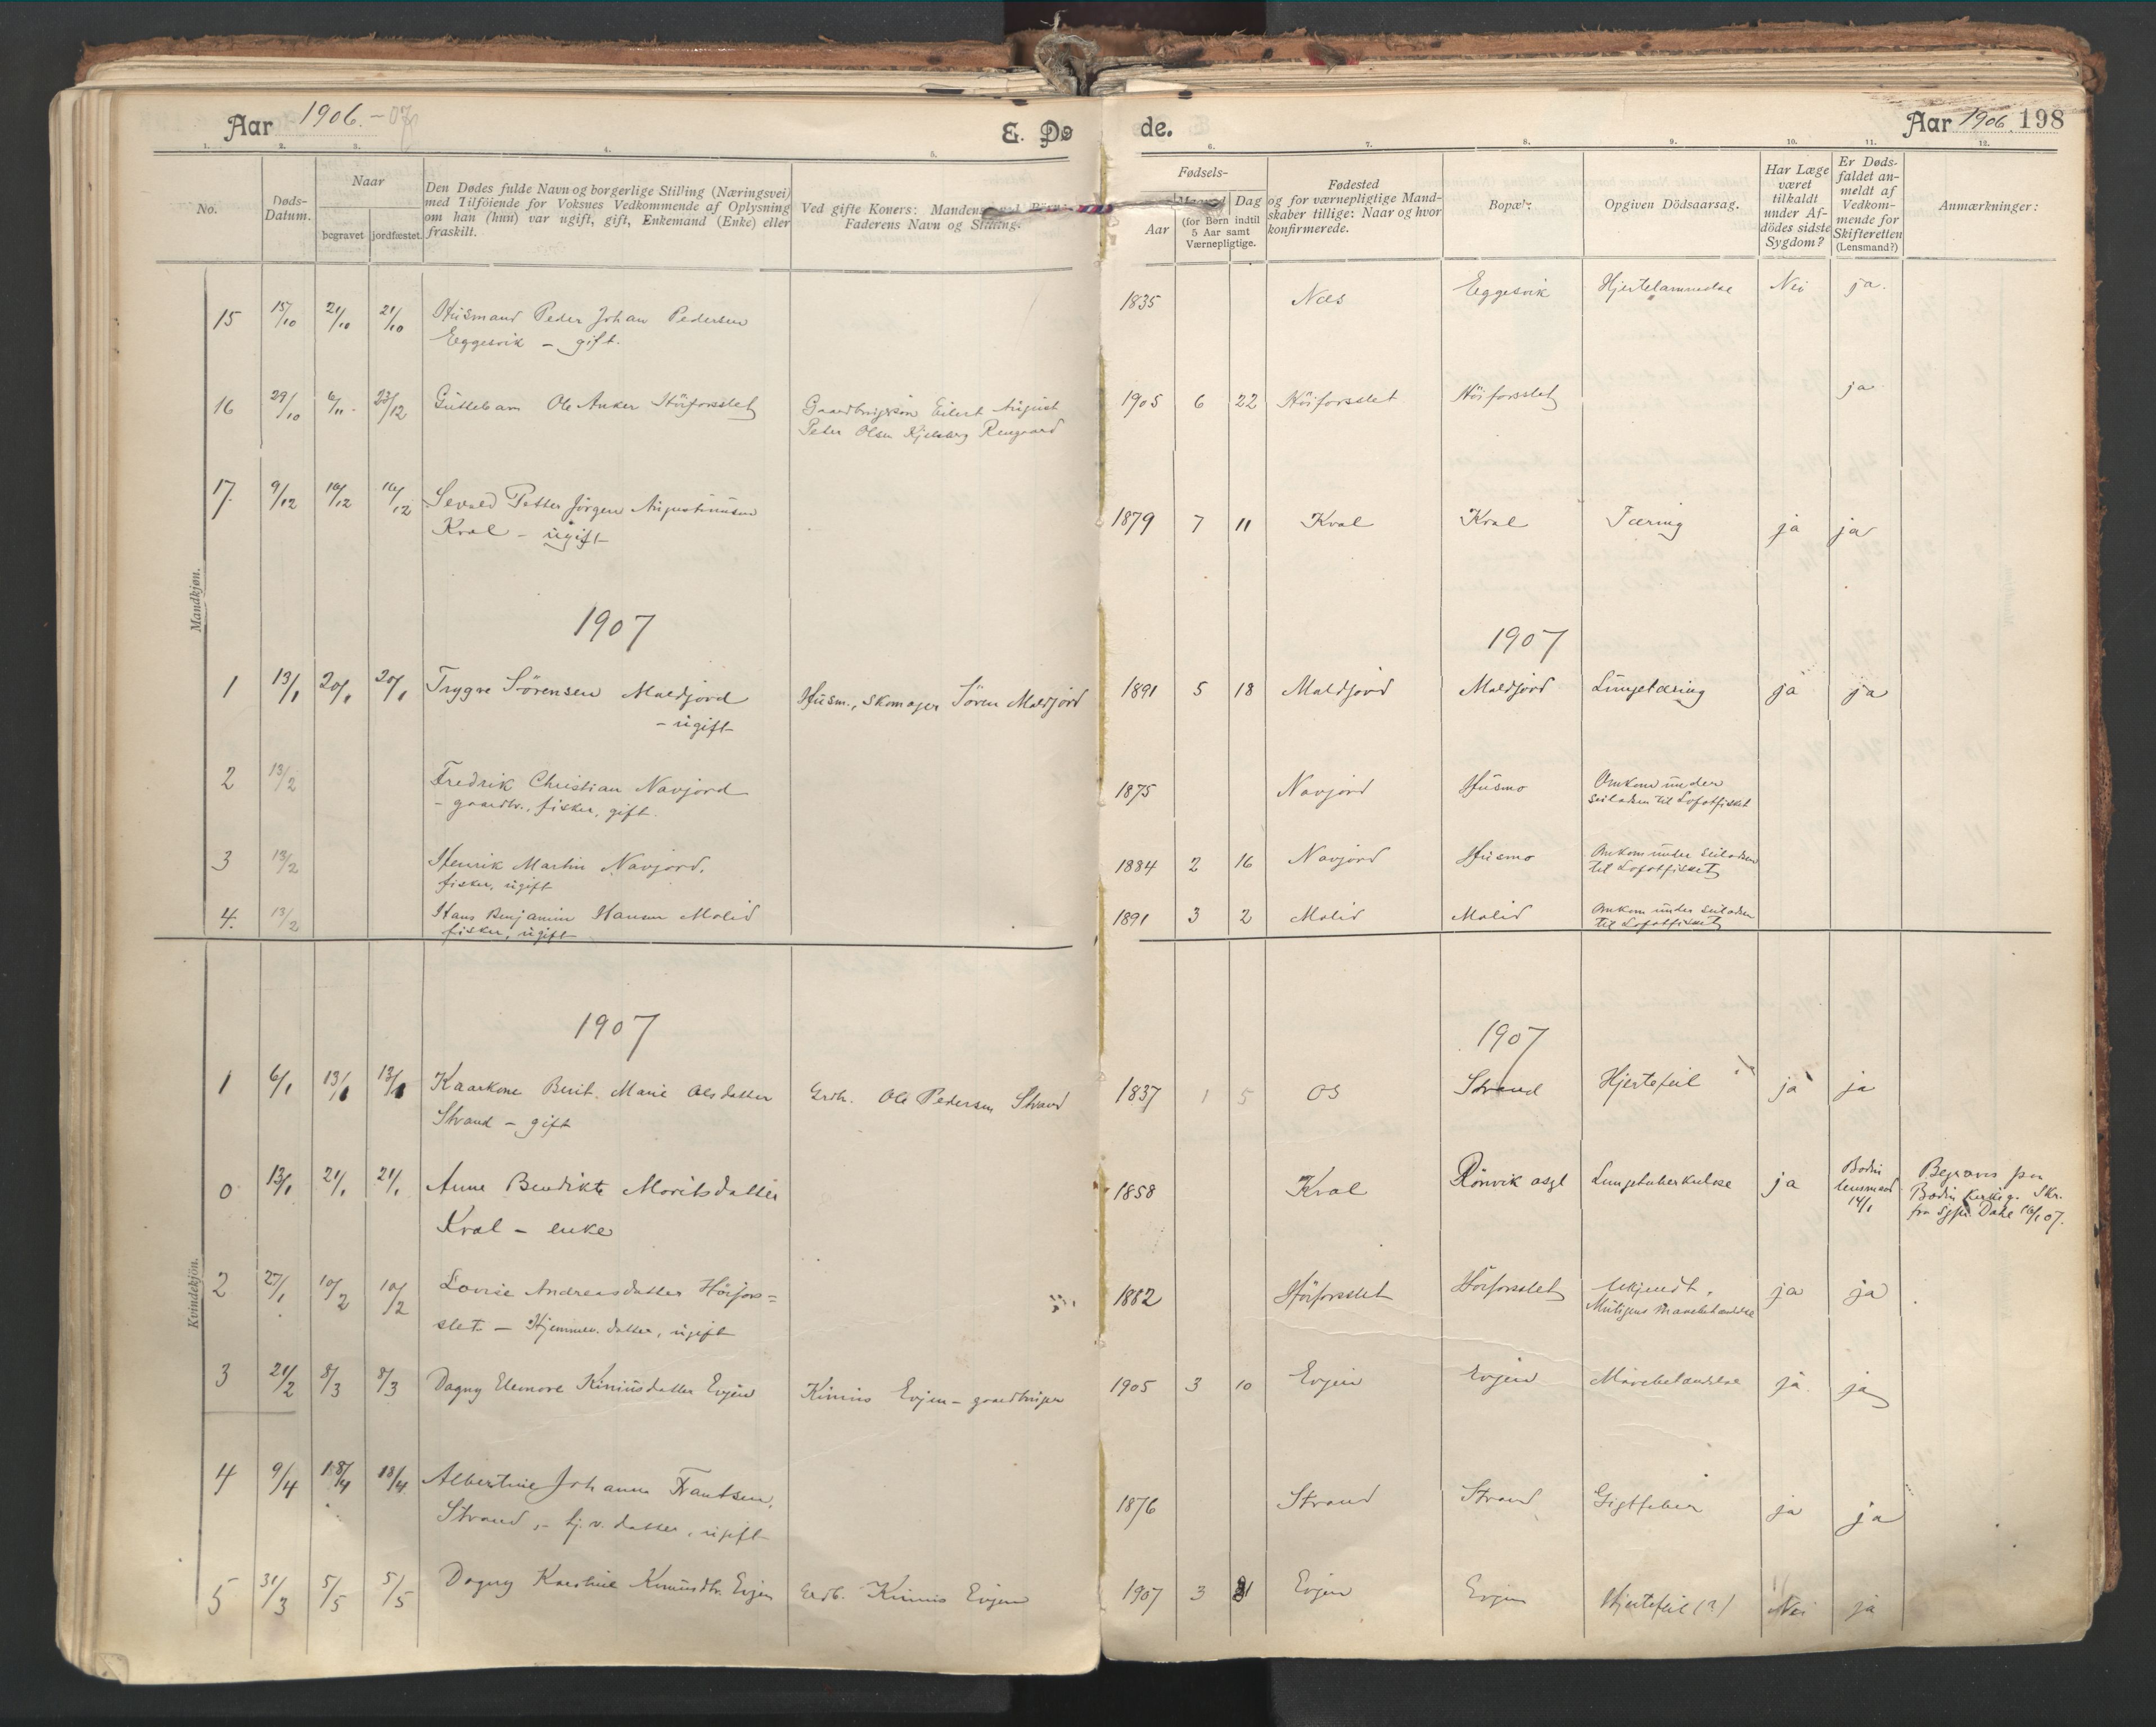 Aar 1906.-07 E. Dø de. Aar 1906. 198
1. 2. 3. 4. 5. 6. 7. 8. 9. 10. 11. 12.
No.
Døds-
Datum.
Naar
begravet jordfæstet.
Den Dødes fulde Navn og borgerlige Stilling (Næringsvei)
med Tilföiende for Voksnes Vedkommende af Oplysning
om han (hun) var ugift, gift, Enkemand (Enke) eller
fraskilt.
Ved gifte Koner: Mandens,
Faderens Navn og Stilling.
Fødsels-
Aar
Dag
(for Børn indtil
5 Aar samt
Værnepligtige.
Fødested
og for værnepligtige Mand-
skaber tillige: Naar og hvor
konfirmerede.
Bopæl:
Opgiven Dödsaarsag.
Har Læge
været
tilkaldt
under Af-
dödes sidste
Sygdom?
Er Døds-
faldet an-
meldt af
Vedkom-
mende for
Skifteretten
(Lensmand?)
Anmærkninger:
Mandkjøn.
15 15/10 21/10 21/10 Husmand Peder Johan Pedersen 1835 Næs Eggesvik Hjertelammelse Nei ja.
Eggesvik - gift.
16 29/10 6/11 23/12 Guttebarn Ole Anker Hörforsslet Gaardbrugersön Eilert August 1905 6 22 Hörforsslet Hörforsslet ja
Peter Olsen Kjelsberg Rengaard
17. 9/12 16/12 16/12 Sevald Petter Jörgen Augustinusen 1879 7 11 Kval Kval Tæring ja ja
Kval - ugift
1907 1907
1 13/1 20/1 20/1 Trygve Sörensen Maldjord Husm., skomager Sören Maldjord 1891 5 18 Maldjord Maldjord Lungetæring ja ja
- ugift
2 13/2 Fredrik Christian Navjord 1875 Navjord Husmo Omkom under
- gaardbr., fisker, gift. seiladsen til Lofotfisket
3 13/2 Henrik Martin Navjord. 1884 2 16 Navjord Husmo Omkom under seiladsen
fisker, ugift til Lofotfisket
4. 13/2 Hans Benjamin Hansen Molid 1891 3 2 Molid Molid Omkom under seiladsen
fisker, ugift til Lofotfisket
Kvindekjön.
1907 1907
1 6/1 13/1 13/1 Kaarkone Berit Marie Olsdatter Grdbr. Ole Pedersen Strand 1837 1 5 Os Strand Hjertefeil ja ja
Strand - gift
0 13/1 21/1 21/1 Anne Bendikte Moritsdatter 1858 Kval Rönvik asyl Lungetuberkulose ja Bodin Begraves paa
lensmand Bodin kirkeg. Skr.
Kval - enke 14/1 fra Sgpr. Dahl 16/1 07.
2 27/1 10/2 10/2 Lovise Andreasdatter Hörfors= 1882 Hörforsslet Hörforsslet Ukjendt, ja ja
slet. - Hjemmev. datter, ugift Muligens Mavebetændelse
3 21/2 8/3 8/3 Dagny Elenore Kiniusdatter Evjen Kinius Evjen - gaardbruger 1905 3 10 Evjen Evjen Mavebetændelse ja ja
4 9/4 18/4 18/4 Albertine Johanna Frantsen, 1876 Strand Strand Gigtfeber ja ja
Strand, - hj.v. datter, ugift
5 31/3 5/5 5/5 Dagny Kaestine Kiniusdtr. Evjen Grdb. Kinius Evjen 1907 3 31 Evjen Evjen Hjertefeil (?) Nei ja